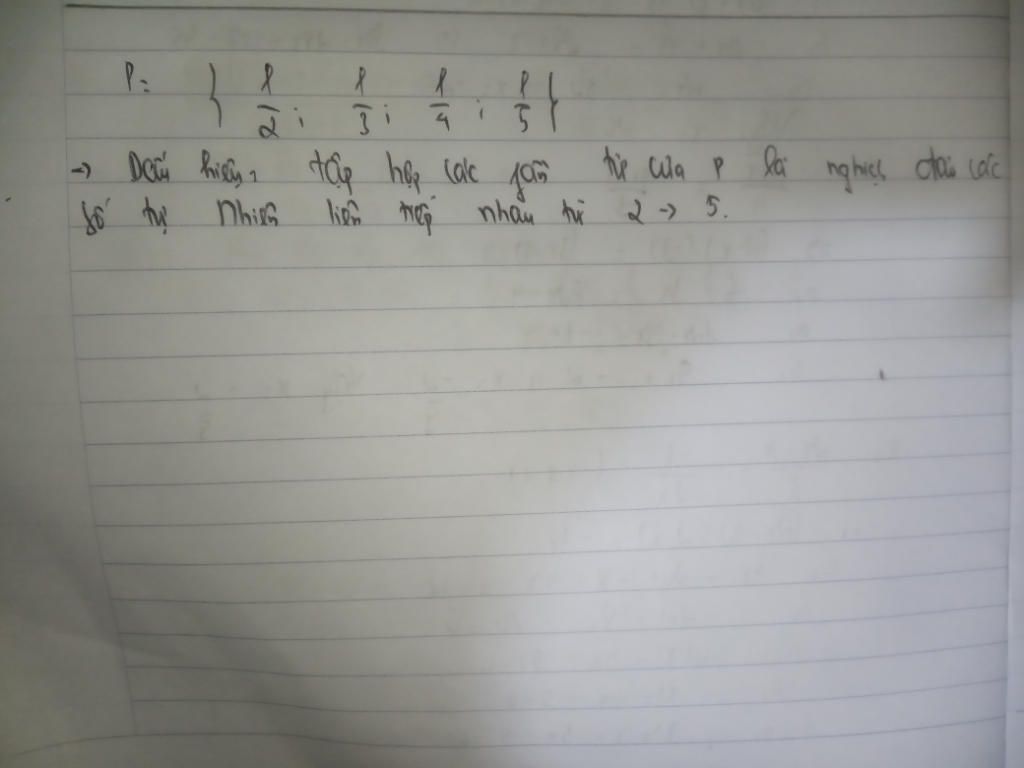 P = { 1/2 ; 1/3 ; 1/4 ; 1/5 }
→ Dấu hiệu, tập hợp các phần tử của P là nghịch đảo các
số tự nhiên liên tiếp nhau từ 2 → 5.